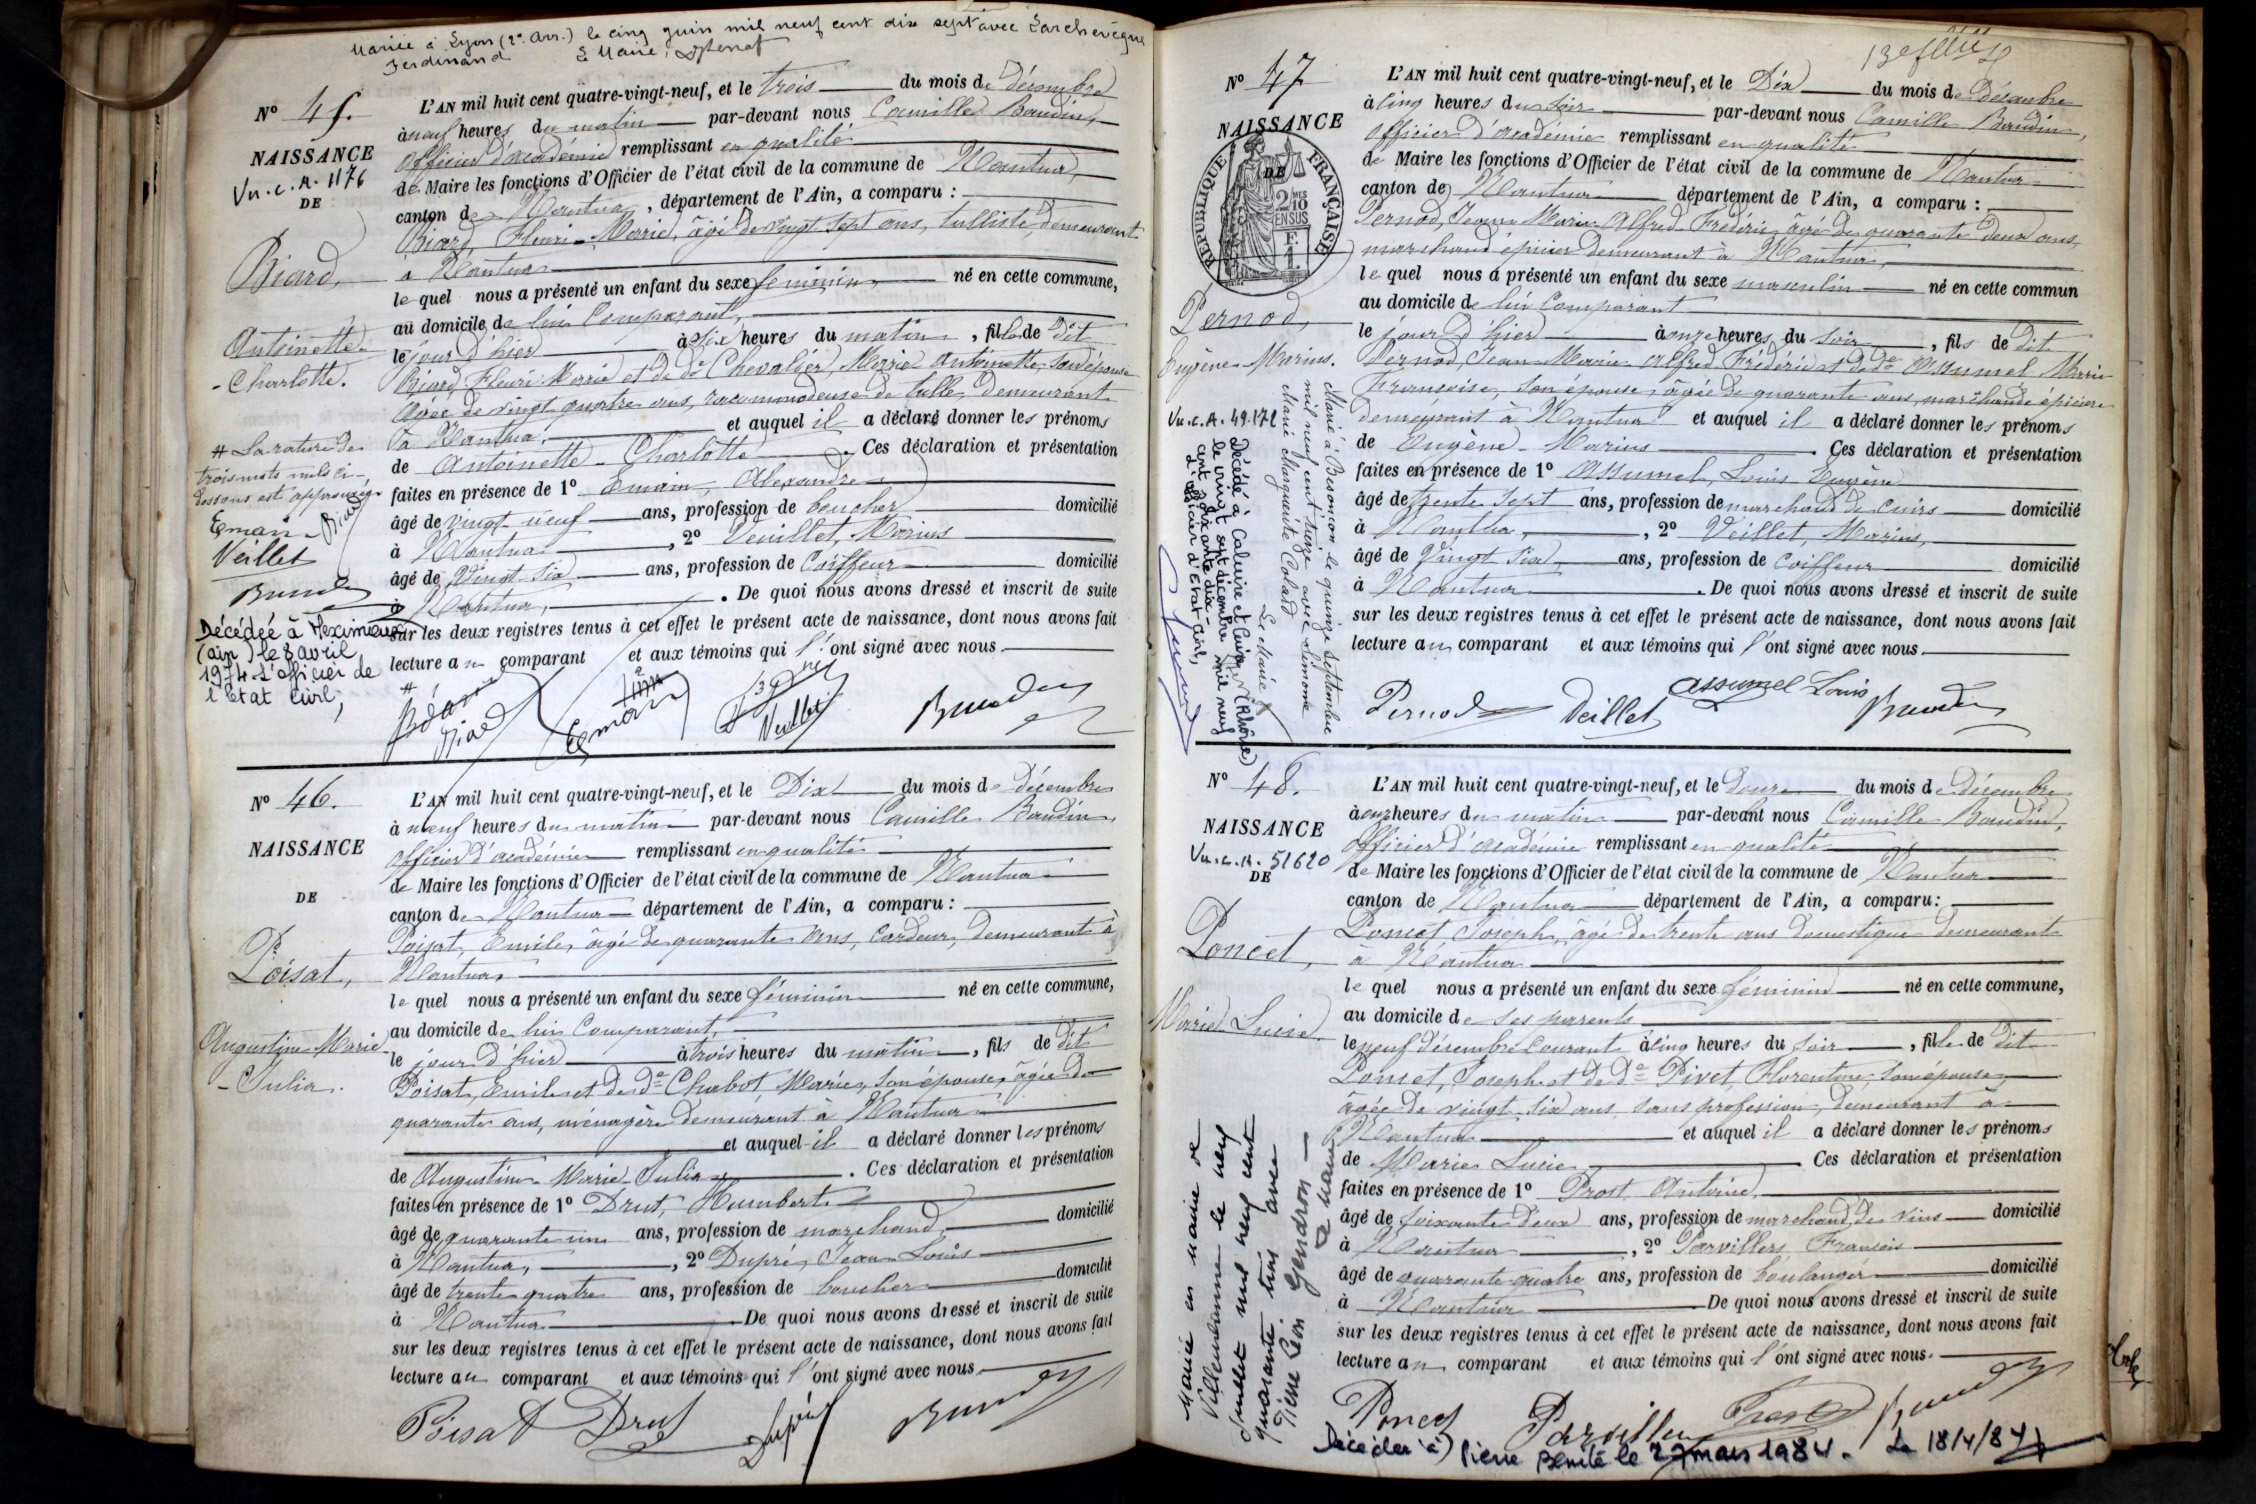 Mariée à Lyon (2e Arr.) le cinq juin mil neuf cent dix sept avec Larchevêque
Ferdinand Le Maire,
N° 45.
NAISSANCE
Vu. c. A. 1176
DE
Biard,
Antoinette
- Charlotte.
# La rature de
trois mots nuls ci-
dessous est approuvée
Eman Biard
Veillet
Décédée à Meximieux
(ain) le 8 avril
1974 L'officier de
l'Etat Civil,
L'AN mil huit cent quatre-vingt-neuf, et le trois du mois de décembre
à neuf heures du matin par-devant nous Camille Baudin,
officier d'académie remplissant en qualité
de Maire les fonctions d'Officier de l'état civil de la commune de Nantua,
canton de Nantua, département de l'Ain, a comparu :
Biard, Fleuri-Marie, âgé de vingt sept ans, tulliste, demeurant
à Nantua
lequel nous a présenté un enfant du sexe féminin, né en cette commune,
au domicile de lui Comparant,
le jour d'hier à six heures du matin, fille de dit
Biard, Fleuri-Marie et de de Chevalier, Marie Antoinette, son épouse
âgée de vingt quatre ans, racommodeuse de tulle, demeurant
à Nantua, et auquel il a déclaré donner les prénoms
de Antoinette-Charlotte. Ces déclaration et présentation
faites en présence de 1° Emain, Alexandre
âgé de vingt-neuf ans, profession de boucher domicilié
à Nantua, 2° Veuillet, Marius
âgé de vingt-six ans, profession de Coiffeur domicilié
à Nantua, . De quoi nous avons dressé et inscrit de suite
sur les deux registres tenus à cet effet le présent acte de naissance, dont nous avons fait
lecture au comparant et aux témoins qui l'ont signé avec nous
#
Biard Eman Veillet
N° 46.
NAISSANCE
DE
Poisat,
Augustine-Marie
-Julia.
L'AN mil huit cent quatre-vingt-neuf, et le Dix du mois de décembre
à neuf heures du matin par-devant nous Camille Baudin,
officier d'académie remplissant en qualité
de Maire les fonctions d'Officier de l'état civil de la commune de Nantua
canton de Nantua département de l'Ain, a comparu :
Poisat, Emile, âgé de quarante ans, Cardeur, demeurant à
Nantua,
lequel nous a présenté un enfant du sexe féminin né en cette commune,
au domicile de lui Comparant,
le jour d'hier à trois heures du matin, fils de dit
Poisat, Emile et de de Chabot, Marie, son épouse, âgée de
quarante ans, ménagère demeurant à Nantua
et auquel il a déclaré donner les prénoms
de Augustine-Marie-Julia . Ces déclaration et présentation
faites en présence de 1° Drut, Humbert
âgé de quarante un ans, profession de marchand domicilié
à Nantua, , 2° Dupré, Jean-Louis
âgé de trente quatre ans, profession de boucher domicilié
à Nantua De quoi nous avons dressé et inscrit de suite
sur les deux registres tenus à cet effet le présent acte de naissance, dont nous avons fait
lecture au comparant et aux témoins qui l'ont signé avec nous
Poisat Drut Dupré
N° 47
NAISSANCE
DE
REPUBLIQUE FRANÇAISE
2 MES
10
EN SUS
Pernod,
Eugène-Marius.
Vu. c. A. 49.172
Marié à Besançon le quinze septembre
mil neuf cent treize avec Simonne
Marie Marguerite Colard
Le Maire
Décédé à Caluire et Cuire (Rhône)
le vingt sept décembre mil neuf
cent soixante dix-
L'officier d'Etat-Civil,
L'AN mil huit cent quatre-vingt-neuf, et le Dix du mois de décembre
à cinq heures du soir par-devant nous Camille Baudin,
officier d'académie remplissant en qualité
de Maire les fonctions d'Officier de l'état civil de la commune de Nantua
canton de Nantua département de l'Ain, a comparu :
Pernod, Jean Marie Alfred Frédéric, âgé de quarante deux ans,
marchand épicier demeurant à Nantua,
lequel nous a présenté un enfant du sexe masculin né en cette commun
au domicile de lui Comparant
le jour d'hier à onze heures du soir, fils de dit
Pernod, Jean Marie Alfred Frédéric et de de Assumel Marie
Françoise, son épouse, âgée de quarante ans, marchande épicière
demeurant à Nantua et auquel il a déclaré donner les prénoms
de Eugène-Marius . Ces déclaration et présentation
faites en présence de 1° Assumel, Louis Eugène
âgé de trente sept ans, profession de marchand de cuirs domicilié
à Nantua, , 2° Veillet, Marius,
âgé de vingt six ans, profession de Coiffeur domicilié
à Nantua . De quoi nous avons dressé et inscrit de suite
sur les deux registres tenus à cet effet le présent acte de naissance, dont nous avons fait
lecture au comparant et aux témoins qui l'ont signé avec nous.
Pernod Veillet Assumel Louis
N° 48.
NAISSANCE
Vu. c. A. 51620
DE
Poncet,
Marie Lucie
Mariée en mairie de
Villeurbanne le neuf
Juillet mil neuf cent
quarante trois avec
Pierre Léon Gendron
Le maire
L'AN mil huit cent quatre-vingt-neuf, et le douze du mois de décembre
à onze heures du matin par-devant nous Camille Baudin,
officier d'académie remplissant en qualité
de Maire les fonctions d'Officier de l'état civil de la commune de Nantua
canton de Nantua département de l'Ain, a comparu :
Poncet, Joseph, âgé de trente ans domestique demeurant
à Nantua
lequel nous a présenté un enfant du sexe féminin né en cette commune,
au domicile de ses parents
le neuf décembre Courant à cinq heures du soir, fille de dit
Poncet, Joseph et de de Pivet, Florentine, son épouse,
âgée de vingt-six ans sans profession, demeurant à
Nantua et auquel il a déclaré donner les prénoms
de Marie Lucie Ces déclaration et présentation
faites en présence de 1° Prost Antoine,
âgé de soixante deux ans, profession de marchand de vins domicilié
à Nantua , 2° Parvillers, François
âgé de quarante quatre ans, profession de boulanger domicilié
à Nantua De quoi nous avons dressé et inscrit de suite
sur les deux registres tenus à cet effet le présent acte de naissance, dont nous avons fait
lecture au comparant et aux témoins qui l'ont signé avec nous.
Poncet Parvillers Prost
Décédée à Pierre Bénite le 27 mars 1984. Le 18/4/84